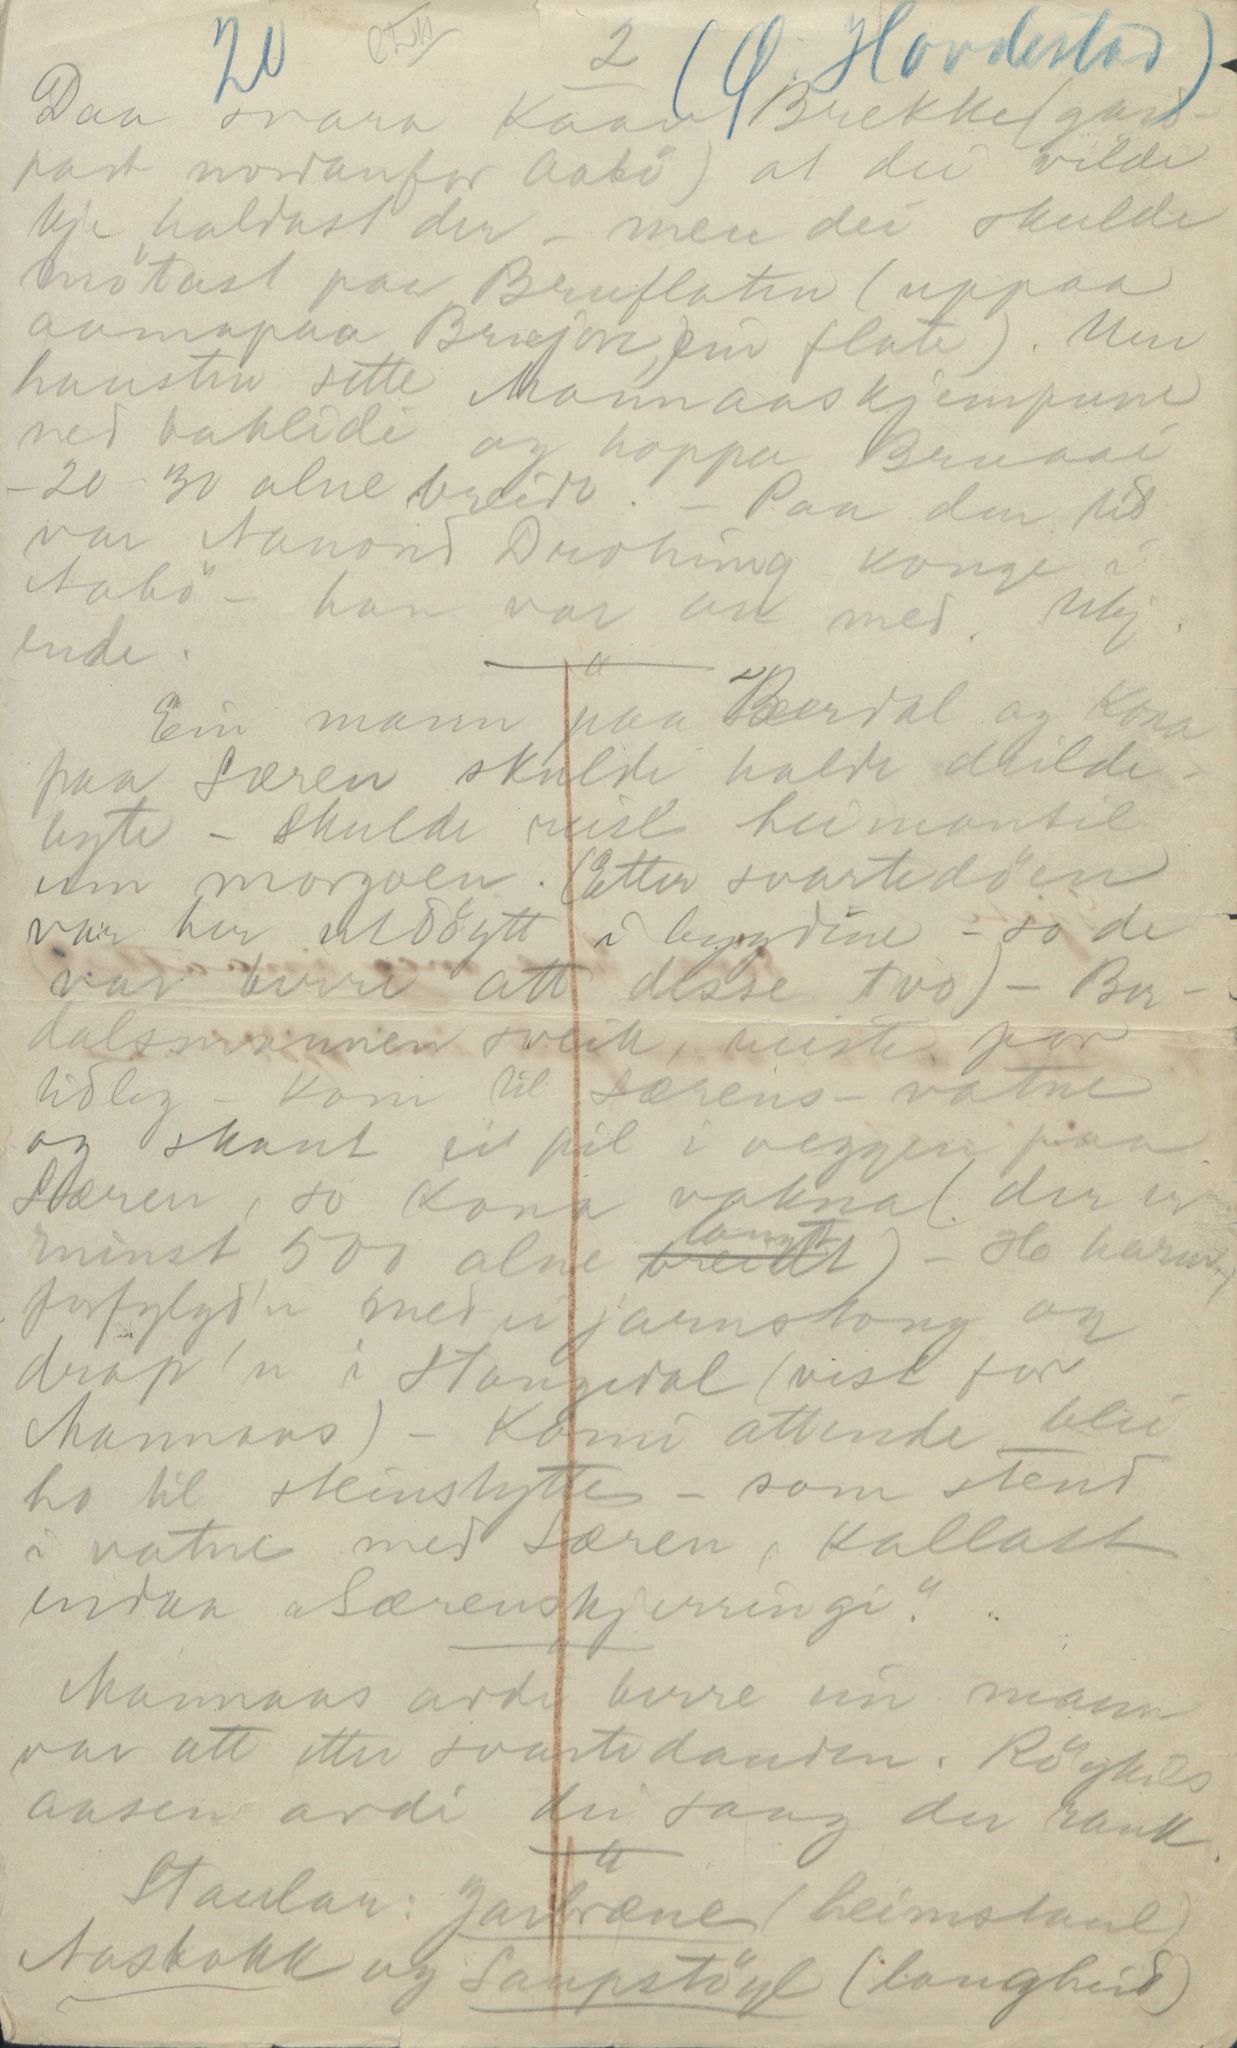 20 2 (Ø. Hovdestad)
Daa svara Kaav Brekke (gard-
part nordanfor Aabö) at dei vilde
kje haldast der – men dei skulde
mötast paa Bruflatin (uppaa
aamapaa Brujore, ein flate). Um
haustin sette Mannaaskjempune
ned baklidi og hoppa Bruaai
– 20–30 alne breid. – Paa den tid
var Aanond Drotning konge i
Aabö – han var au med. Ukj.
ende.
Ein mann paa Berdal og Kona
paa Særen skulde halde deilde-
byte – skulde reise heimantil
um morgoen. (Etter svartedöen
var her utdöytt i bygdine – so de
var berre att desse tvo) – Ber-
dalsmannen sveik, reiste for
tidleg – kom til Særens-vatne
og skaut ei pil i veggen paa
Særen, so Kona vakna (der er
minst 500 alne breidt langt) – Ho
forfylgd'n med ei jarnstong og
drap'n i Stangedal (vest for
Mannaas) – Komi attende blei
ho til steinstytte – som stend
i vatne med Særen, kallast
endaa "Særenskjerringi".
Mannaas ardi berre ein mann
var att etter svartedauden. Röykils
aasen ardi dei saag der rauk.
Staular: Jarbræne (heimstaul)
Aasbakk og Saupstöyl (langheid)